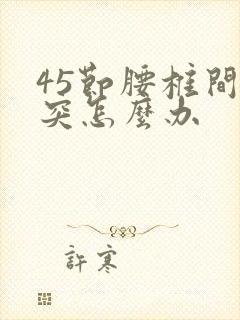 45節腰椎間
突怎麼办
許寒